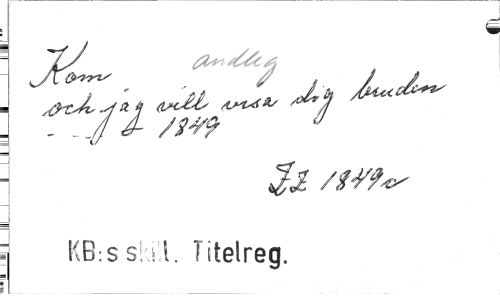 Kom andlig
och jag vill visa dig bruden
- - - 1849
ZZ 1849
KB:s skill. Titelreg.